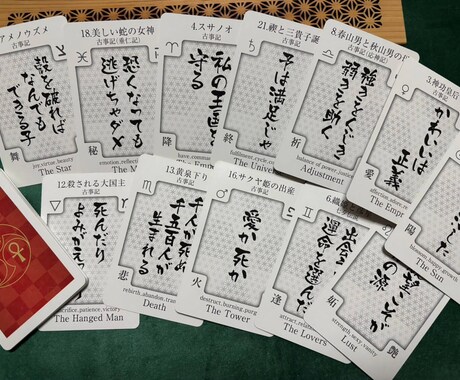 アメノウズメ
古事記
殻を破れば
なんでも
できる子
舞
joy,virtue,beauty
The Star
18.美しい蛇の女神
古事記(垂仁記)
恐くなっても
逃げちゃダメ
秘
emotion,reflec
The M
4.スサノオ
古事記
私の王国を
守る
降
21.禊と三貴子誕
古事記
子は満足じゃ
終
fulfilment,cycle,
The Univers
8.春山男と秋山男の
古事記(応神記)
強きをくじき
弱きを助く
祈
balance of power,justi
Adjustment
3.神功皇后
かわいいは
正義
愛
The Empr
陽
The Sun
12.殺される大国主
古事記
死んだり
よみがえっ
sacrifice,patience,victory
The Hanged Man
13.黄泉下り
古事記
千人が死ぬ
千五百人が
生まれる
悲
rebirth,abandon,tran
Death
16.サクヤ姫の出産
古事記
愛か死か
火
destruct,burning,purg
The Tower
出会
運命を選んだ
逢
attract,rela
The Lovers
の源
妬
strength,sexy,vanity
Lust
艶